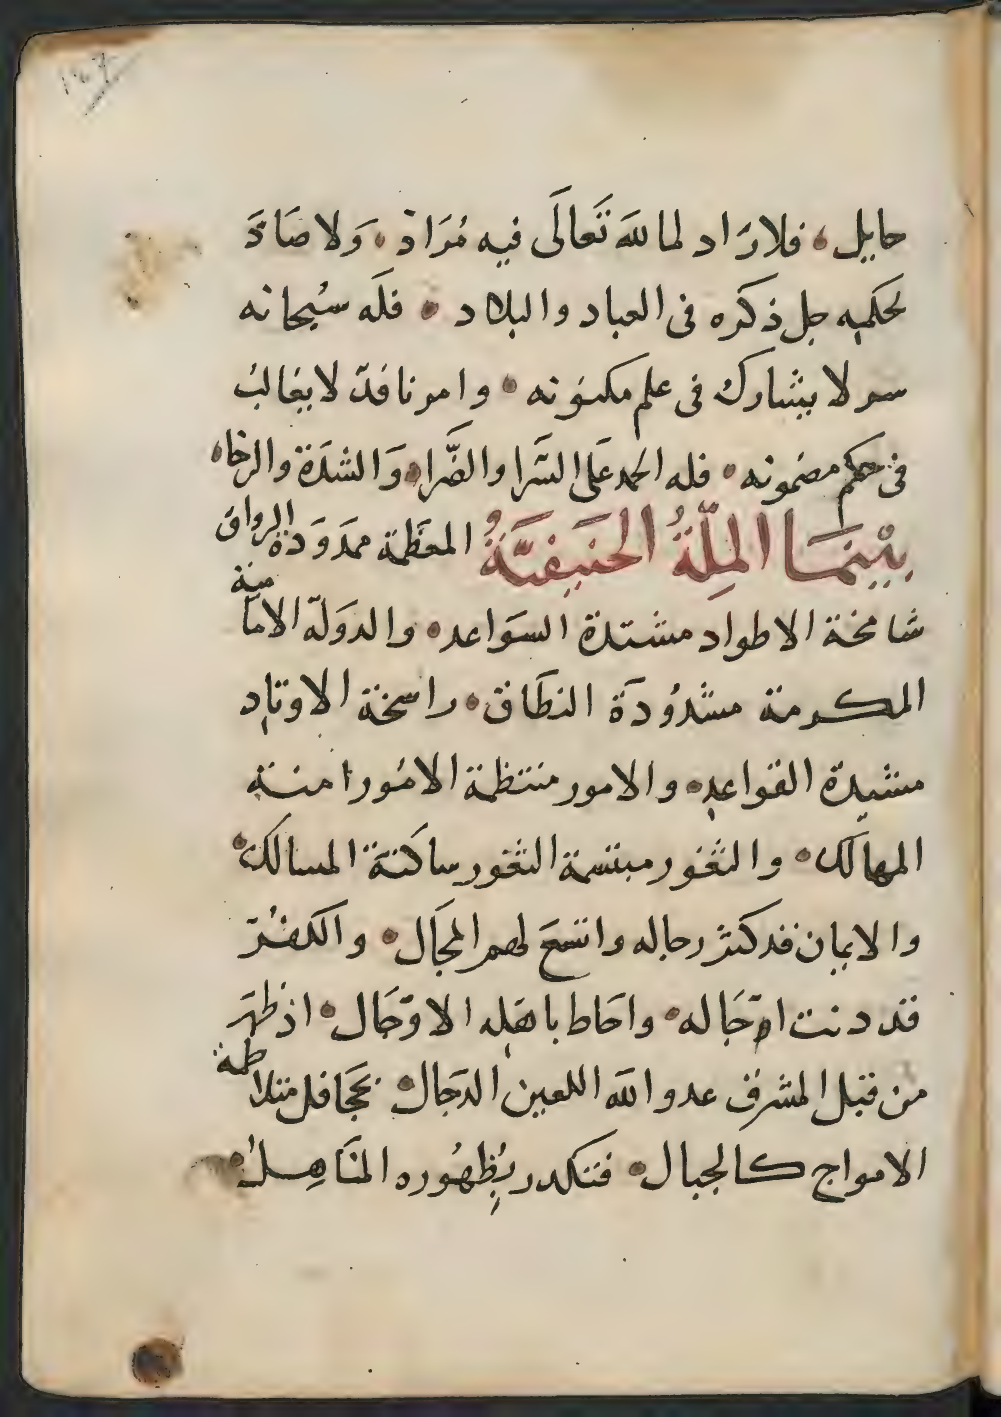 حايل • فلا رَاد لما لله تَعالَى فيه مُرَاد • وَلا صَادَّ
لحكمه جل ذكره فى العباد والبلاد • فلَه سُبحانه
سر لا يشارك فى علم مكنونه • وامر نافذ لا يغالبُ
فى حكم مضمونه • فله الحمد عَلى السَّرا والضَّرا • وَالشدَة والرخا •
بيْنمَا المِلّةُ الحَنيفيَّةُ المعَظمة ممدَودَة الرواق
شامخة الاطواد مشتدة السوَاعد • والدوَلة الامامية
المكرمة مشدُودَة النطَاق • راسخة الاوتاد
مشيدة القواعد • والامور منتظمة الامُور امنة
المهالك • والثغور مبتسمة الثغور ساكنة المسالك •
والايمان قد كثر رجاله واتسعَ لهم المجَال • والكفْرُ
قد دنت اوْجَاله • واحَاط باهَله الاوْحَال • اذ ظهَر
من قبل المشرق عدو الله اللعين الدجال • بجَحَافل متلاطمة
الامواج كالجبال • فتكدر بِظهُوره المنَاهِل •